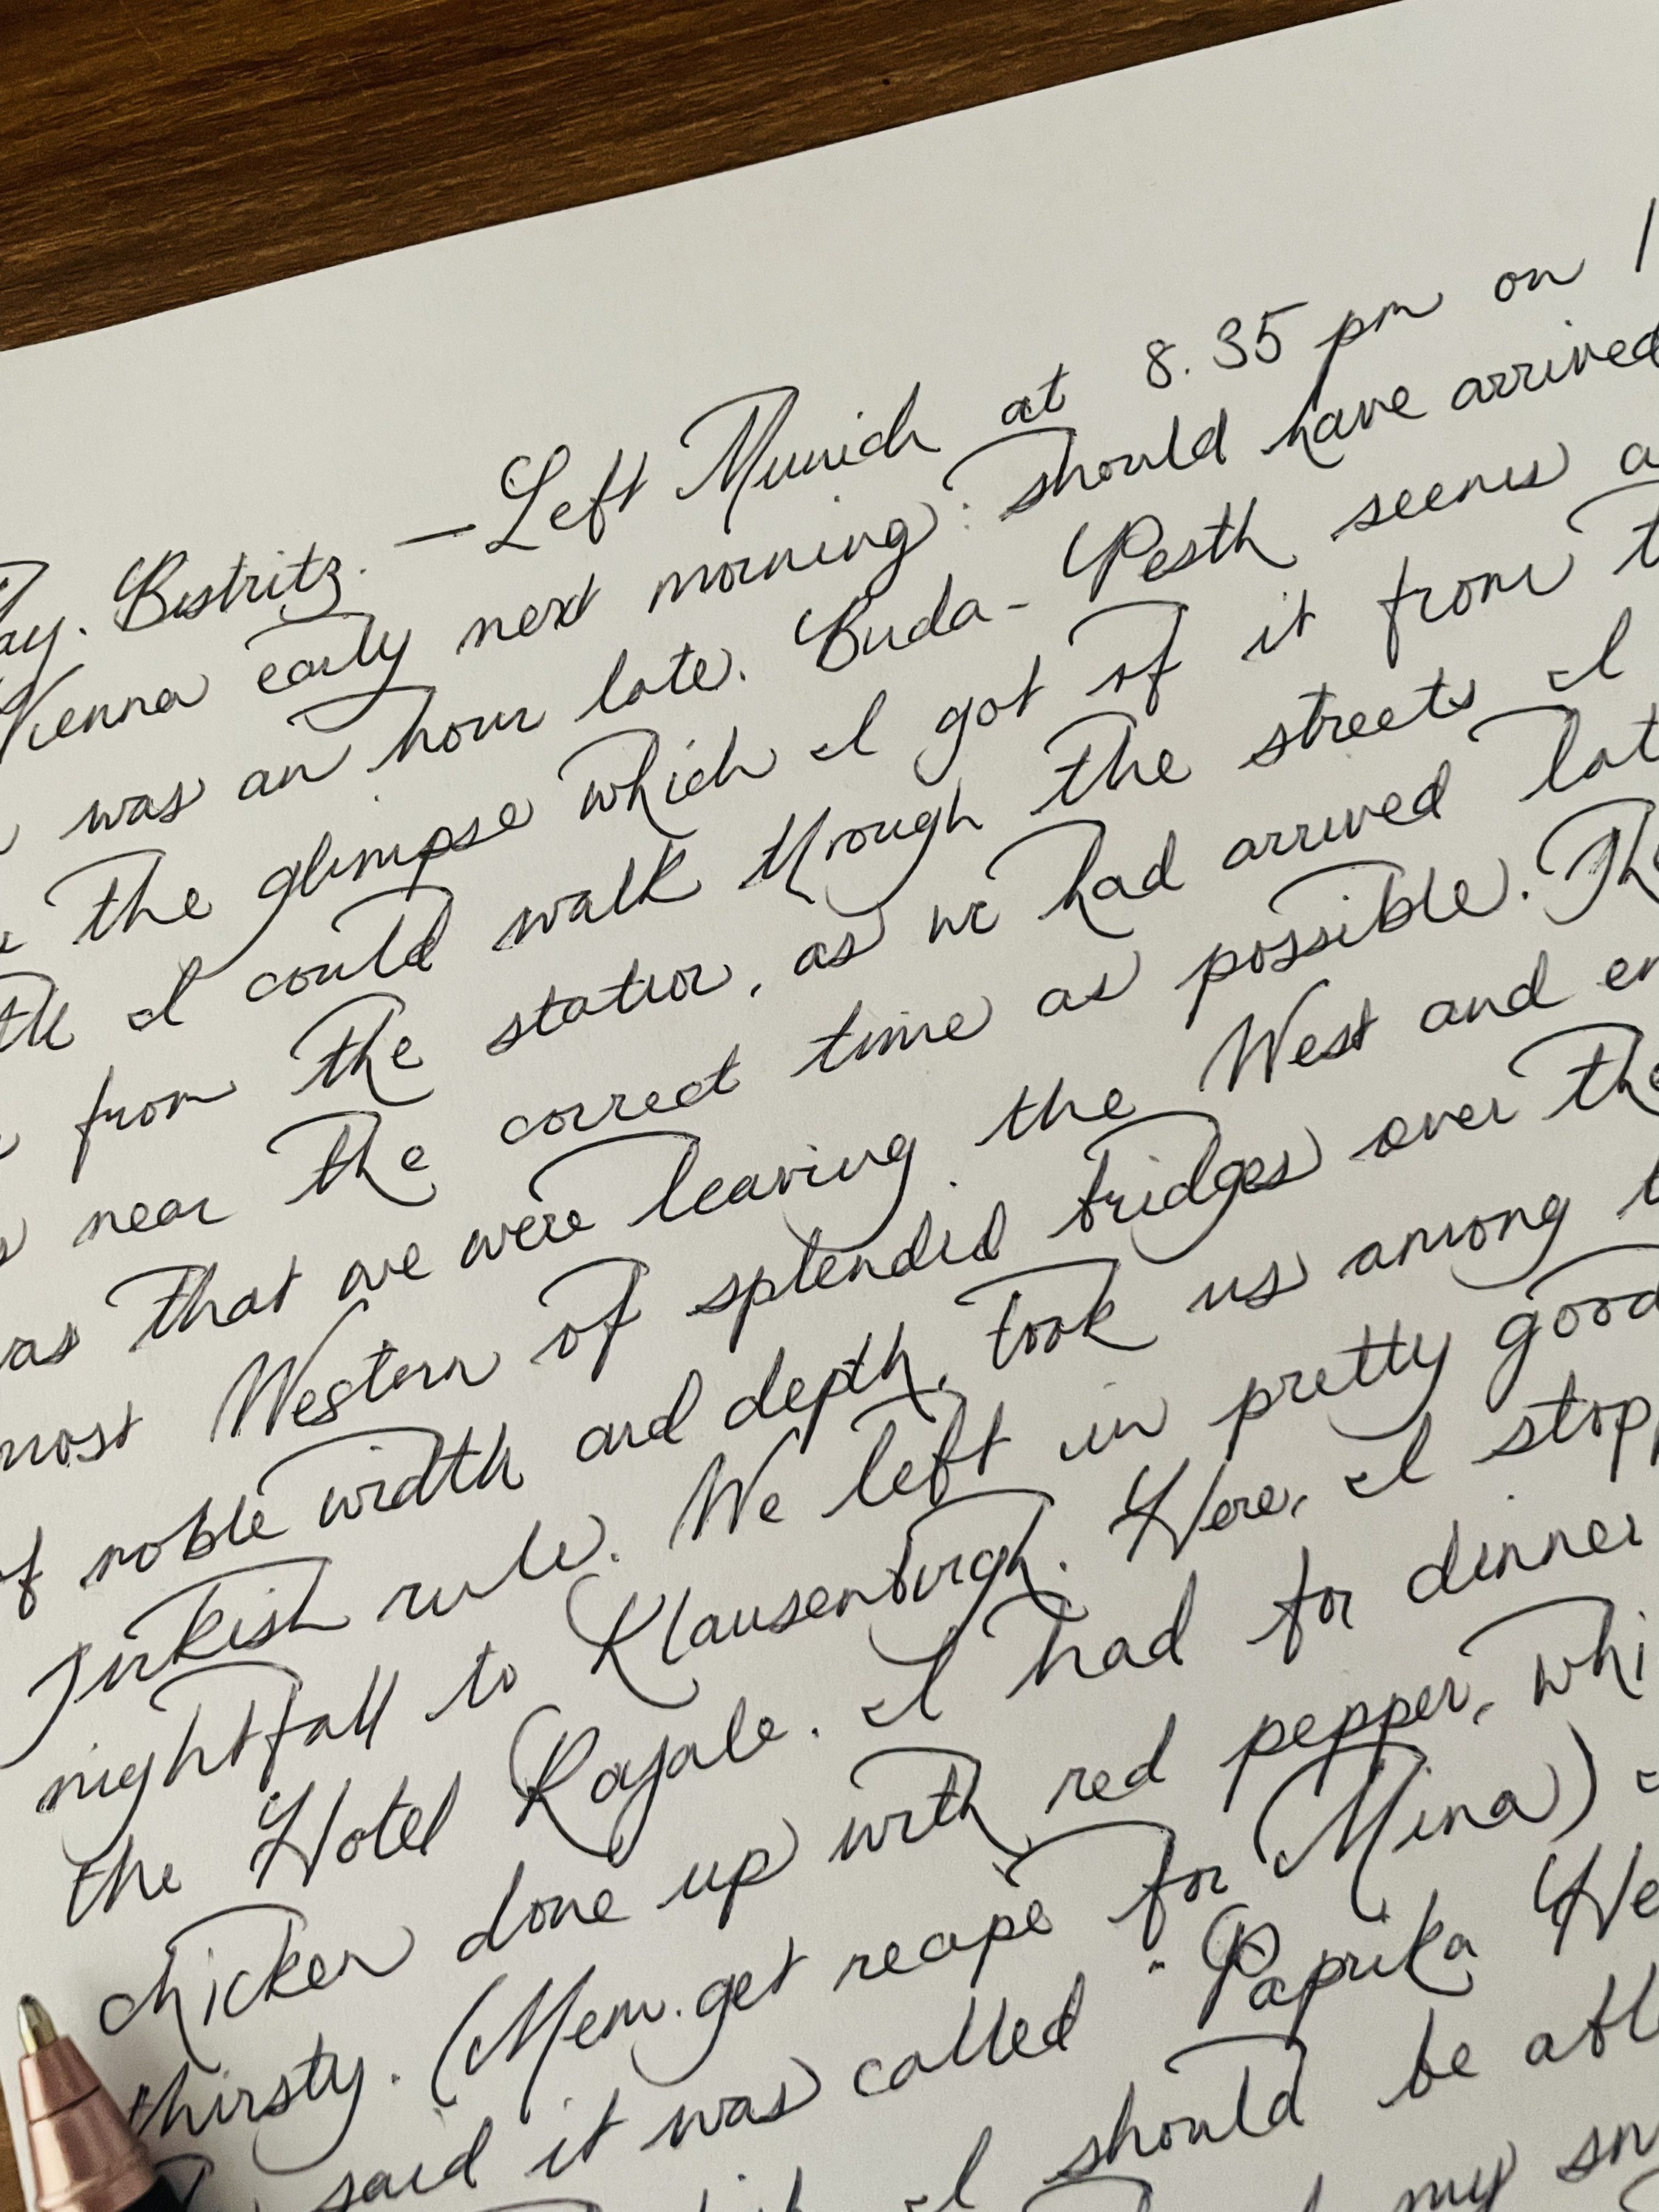 ay. Bistritz. — Left Munich at 8.35 pm on 1
Vienna early next morning: should have arrived
was an hour late. Buda-Pesth seems a
the glimpse which I got of it from t
ttle I could walk through the streets I
from the station, as we had arrived lat
near the correct time as possible. Th
as that we were leaving the West and en
most Western of splendid bridges over the
of noble width and depth, took us among t
Turkish rule. We left in pretty good
nightfall to Klausenburgh. Here, I stopp
the Hotel Royale. I had for dinner
chicken done up with red pepper, whi
thirsty. (Mem. get recipe for Mina)
said it was called "Paprika He
I should be able
my sm